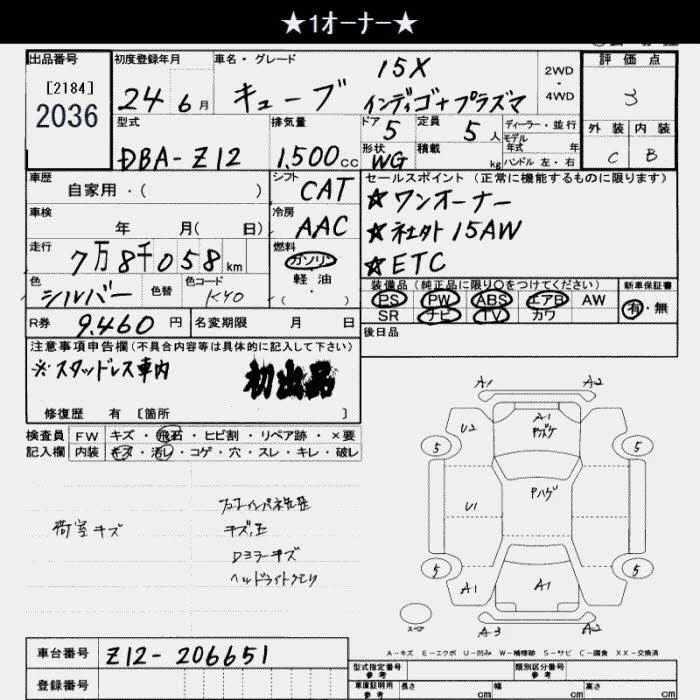 ★1オーナー★
出品番号
[2184]
2036
初度登録年月
24年6月
車名・グレード
キューブ
15X
インディゴ+プラズマ
2WD
・
4WD
評価点
3
外装 内装
C B
型式
DBA-Z12
排気量
1,500cc
ドア 5
定員 5人
形状 WG
積載 kg
ディーラー・並行
モデル年式 年
ハンドル 左・右
車歴
自家用・( )
シフト CAT
車検
年 月( 日)
冷房 AAC
走行
7万8千058km
燃料
ガソリン
軽油
・
( )
色
シルバー
色替
色コード
K40
R券 9,460円
名変期限 月 日
セールスポイント(正常に機能するものに限ります)
☆ワンオーナー
☆社外15AW
☆ETC
装備品(純正品に限り○をつけてください)
PS PW ABS エアB AW
SR ナビ TV カワ
新車保証書
有・無
後日品
注意事項申告欄(不具合内容等は具体的に記入して下さい)
※スタッドレス車内
初出品
修復歴 有 [箇所 ]
検査員記入欄
FW キズ・飛石・ヒビ割・リペア跡・×要
内装 キズ・汚レ・コゲ・穴・スレ・キレ・破レ
荷室キズ
Dミラーキズ
ヘッドライトクモリ
A1 A2
U2 A1
5 5
U1 Pハゲ
5 5
A1 A1
スペア
A3 A2
A-キズ E-エクボ U-凹み W-補修跡 S-サビ C-腐食 XX-交換済
車台番号 Z12-206651
登録番号
型式指定番号 参考
類別区分番号 参考
車庫証明用 参考 長さ cm 幅 cm 高さ cm